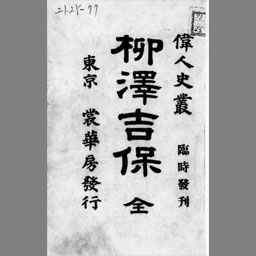 2121-77
偉人史叢 臨時發刊
柳澤吉保 全
東京 裳華房發行